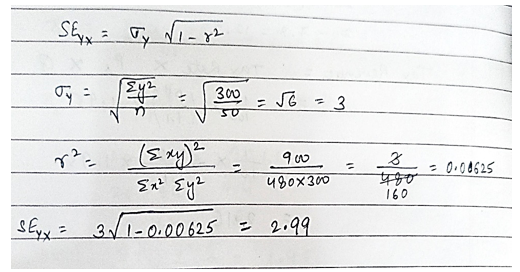 SE_yx = σ_y √(1 - r²)
σ_y = √(Σy²/n) = √(300/50) = √6 = 3
r² = (Σxy)²/(Σx² Σy²) = 900/(480×300) = 3/(480) 160 = 0.00625
SE_yx = 3√(1-0.00625) = 2.99